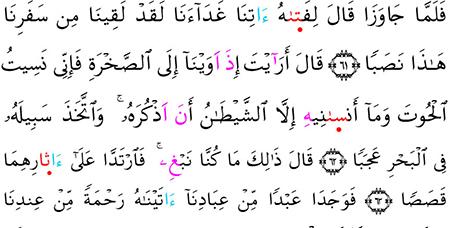 فَلَمَّا جَاوَزَا قَالَ لِفَتَىٰهُ ءَاتِنَا غَدَآءَنَا لَقَدْ لَقِينَا مِن سَفَرِنَا
هَٰذَا نَصَبٗا ٦١ قَالَ أَرَٰٓيْتَ إِذَ اَوَيْنَآ إِلَى اَ۬لصَّخْرَةِ فَإِنِّي نَسِيتُ
اُ۬لْحُوتَ وَمَآ أَنسَىٰنِيهِ إِلَّا اَ۬لشَّيْطَٰنُ أَنَ اَذْكُرَهُۥۚ وَاتَّخَذَ سَبِيلَهُۥ
فِي اِ۬لْبَحْرِ عَجَبٗا ٦٢ قَالَ ذَٰلِكَ مَا كُنَّا نَبْغِۦۚ فَارْتَدَّا عَلَىٰٓ ءَاثَٰارِهِمَا
قَصَصٗا ٦٣ فَوَجَدَا عَبْدٗا مِّنْ عِبَادِنَآ ءَاتَيْنَٰهُ رَحْمَةٗ مِّنْ عِندِنَا